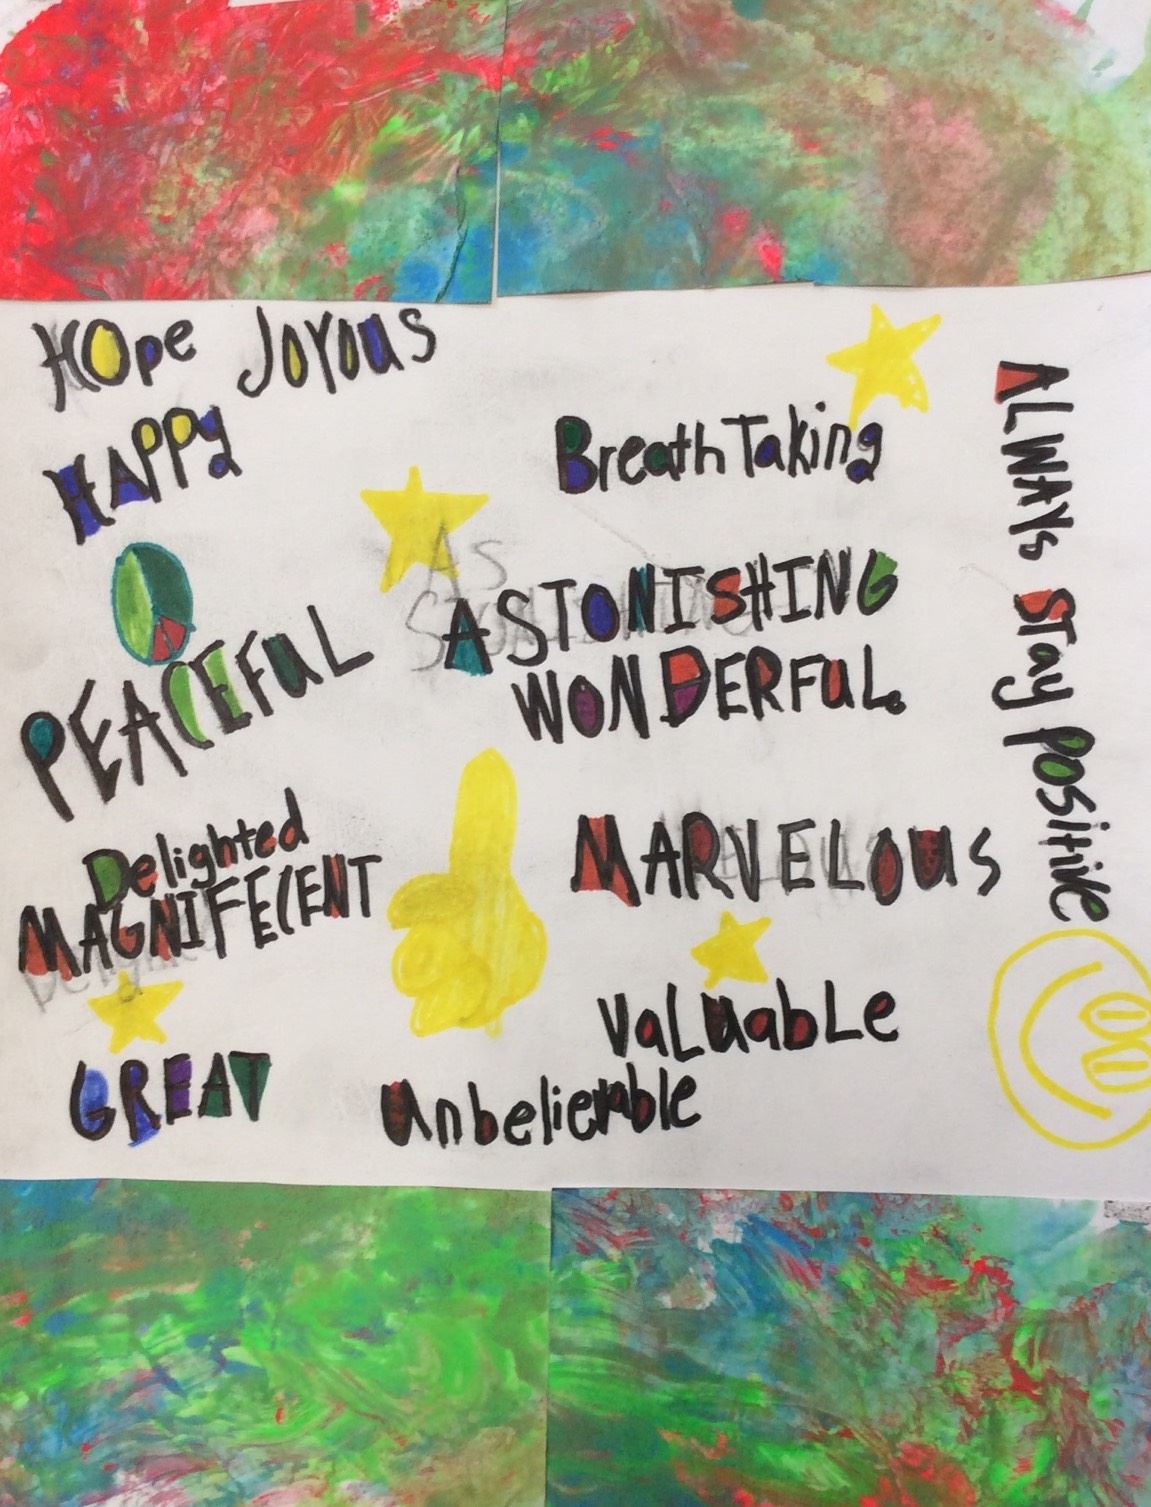 Hope Joyous
Happy
BreathTaking
ASTONISHING
PEACEFUL
WONDERFUL.
Delighted
MAGNIFECENT
MARVELOUS
Valuable
GREAT
Unbelievable
ALWAYS STAY Positive